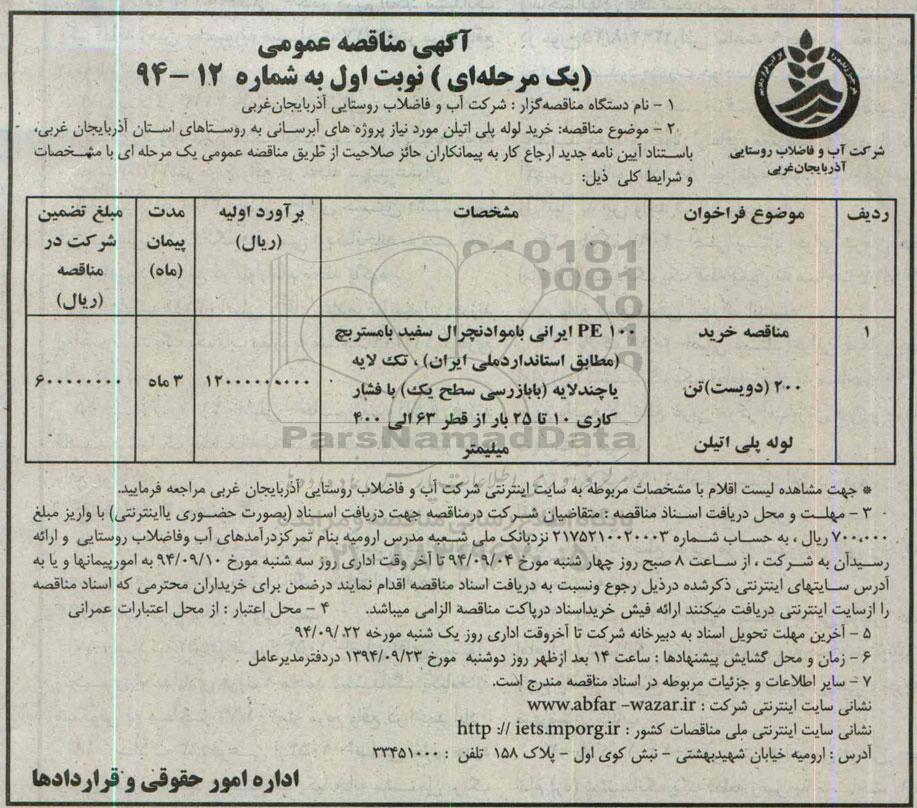 آگهی مناقصه عمومی
(یک مرحله‌ای) نوبت اول به شماره ۱۲-۹۴
شرکت آب و فاضلاب روستایی
آذربایجان‌غربی
۱ - نام دستگاه مناقصه‌گزار : شرکت آب و فاضلاب روستایی آذربایجان‌غربی
۲ - موضوع مناقصه: خرید لوله پلی اتیلن مورد نیاز پروژه های آبرسانی به روستاهای استان آذربایجان غربی،
باستناد آیین نامه جدید ارجاع کار به پیمانکاران حائز صلاحیت از طریق مناقصه عمومی یک مرحله ای با مشخصات
و شرایط کلی ذیل:
ردیف | موضوع فراخوان | مشخصات | برآورد اولیه (ریال) | مدت پیمان (ماه) | مبلغ تضمین شرکت در مناقصه (ریال)
۱ | مناقصه خرید ۲۰۰ (دویست) تن لوله پلی اتیلن | PE ۱۰۰ ایرانی باموادنچرال سفید بامستربچ (مطابق استانداردملی ایران) ، تک لایه یاچندلایه (بابازرسی سطح یک) با فشار کاری ۱۰ تا ۲۵ بار از قطر ۶۳ الی ۴۰۰ میلیمتر | ۱۲۰۰۰۰۰۰۰۰۰ | ۳ ماه | ۶۰۰۰۰۰۰۰۰
ParsNamadData
پایگاه اطلاع رسانی مناقصه و مزایده
* جهت مشاهده لیست اقلام با مشخصات مربوطه به سایت اینترنتی شرکت آب و فاضلاب روستایی آذربایجان غربی مراجعه فرمایید.
۳ - مهلت و محل دریافت اسناد مناقصه : متقاضیان شرکت درمناقصه جهت دریافت اسناد (بصورت حضوری یااینترنتی) با واریز مبلغ
۷۰۰،۰۰۰ ریال ، به حساب شماره ۲۱۷۵۲۱۰۰۲۰۰۰۳ نزدبانک ملی شعبه مدرس ارومیه بنام تمرکزدرآمدهای آب وفاضلاب روستایی و ارائه
رسیدآن به شرکت ، از ساعت ۸ صبح روز چهارشنبه مورخ ۹۴/۰۹/۰۴ تا آخر وقت اداری روز سه شنبه مورخ ۹۴/۰۹/۱۰ به امورپیمانها و یا به
آدرس سایتهای اینترنتی ذکرشده درذیل رجوع ونسبت به دریافت اسناد مناقصه اقدام نمایند درضمن برای خریداران محترمی که اسناد مناقصه
را ازسایت اینترنتی دریافت میکنند ارائه فیش خریداسناد درپاکت مناقصه الزامی میباشد. ۴ - محل اعتبار : از محل اعتبارات عمرانی
۵ - آخرین مهلت تحویل اسناد به دبیرخانه شرکت تا آخروقت اداری روز یک شنبه مورخه ۹۴/۰۹/۲۲.
۶ - زمان و محل گشایش پیشنهادها : ساعت ۱۴ بعد ازظهر روز دوشنبه مورخ ۱۳۹۴/۰۹/۲۳ دردفترمدیرعامل
۷ - سایر اطلاعات و جزئیات مربوطه در اسناد مناقصه مندرج است.
نشانی سایت اینترنتی شرکت : www.abfar -wazar.ir
نشانی سایت اینترنتی ملی مناقصات کشور : http :// iets.mporg.ir
آدرس : ارومیه خیابان شهیدبهشتی - نبش کوی اول - پلاک ۱۵۸ تلفن : ۳۳۴۵۱۰۰۰
اداره امور حقوقی و قراردادها